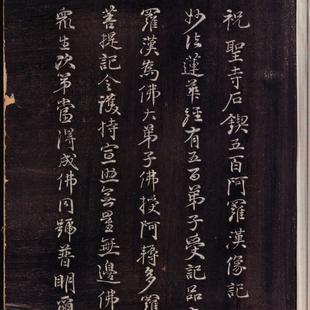 祝聖寺石鍥五百阿羅漢像記
妙法蓮華經有五百弟子受記品
羅漢為佛大弟子佛授阿耨多羅
菩提記令護持宣照無量無邊佛
眾生次第當得成佛同號普明